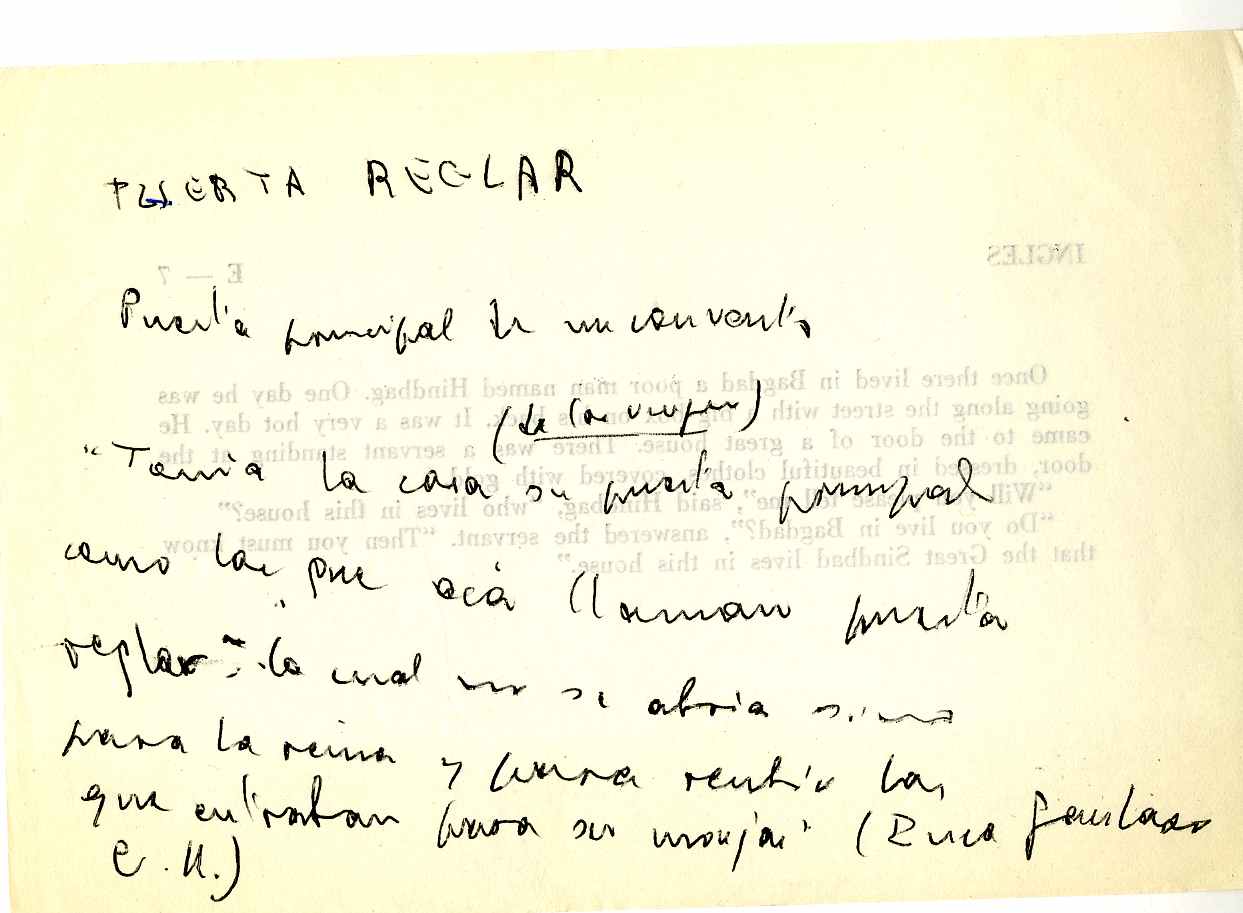 PUERTA REGLAR
Puerta principal de un convento
(de las vírgenes)
"Tenía la casa su puerta principal
como las que acá llaman puerta
reglar", la cual no se abría sino
para la reina y para recibir las
que entraban para ser monjas" (Inca Garcilaso
C.R.)
INGLES
E — 7
Once there lived in Bagdad a poor man named Hindbag. One day he was
going along the street with a big box on his back. It was a very hot day. He
came to the door of a great house. There was a servant standing at the
door, dressed in beautiful clothes covered with gold.
"Will you please tell me", said Hindbag, "who lives in this house?"
"Do you live in Bagdad?", answered the servant. "Then you must know
that the Great Sindbad lives in this house."